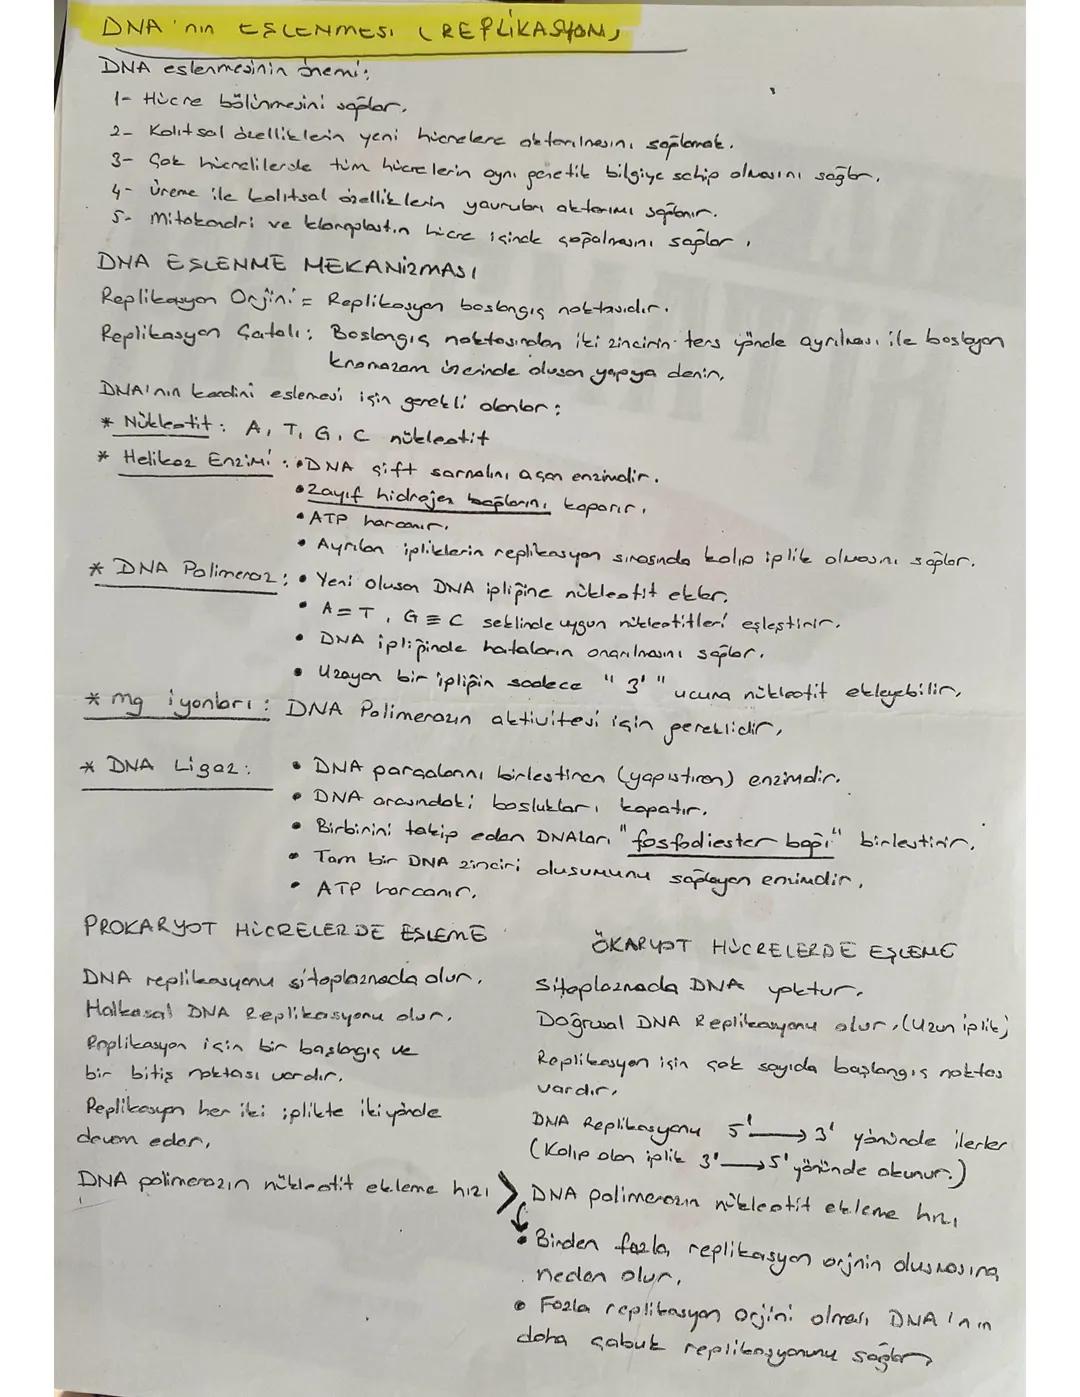 DNA'nın EŞLENMESİ (REPLİKASYON)
DNA eşlenmesinin önemi;
1- Hücre bölünmesini sağlar.
2- Kalıtsal özelliklerin yeni hücrelere aktarılmasını sağlamak.
3- Çok hücrelilerde tüm hücrelerin aynı genetik bilgiye sahip olmasını sağlar.
4- Üreme ile kalıtsal özelliklerin yavrulara aktarımı sağlanır.
5- Mitokondri ve kloroplastın hücre içinde çoğalmasını sağlar.
DNA EŞLENME MEKANİZMASI
Replikasyon Orjini = Replikasyon başlangıç noktasıdır.
Replikasyon Çatalı: Başlangıç noktasından iki zincirin ters yönde ayrılması ile başlayan
kromozom üzerinde oluşan yapıya denir.
DNA'nın kendini eşlemesi için gerekli olanlar:
* Nükleotit: A, T, G, C nükleotit
* Helikaz Enzimi: • DNA çift sarmalını açan enzimdir.
• Zayıf hidrojen bağlarını koparır.
• ATP harcanır.
• Ayrılan ipliklerin replikasyon sırasında kalıp iplik olmasını sağlar.
* DNA Polimeraz: • Yeni oluşan DNA ipliğine nükleotit ekler.
• A=T, G≡C şeklinde uygun nükleotitleri eşleştirir.
• DNA ipliğinde hataların onarılmasını sağlar.
• Uzayan bir ipliğin sadece "3'" ucuna nükleotit ekleyebilir.
* Mg iyonları: DNA Polimerazın aktivitesi için gereklidir.
* DNA Ligaz: • DNA parçalarını birleştiren (yapıştıran) enzimdir.
• DNA arasındaki boşlukları kapatır.
• Birbirini takip eden DNAları "fosfodiester bağı" birleştirir.
• Tam bir DNA zinciri oluşumunu sağlayan enzimdir.
• ATP harcanır.
PROKARYOT HÜCRELERDE EŞLEME
DNA replikasyonu sitoplazmada olur.
Halkasal DNA Replikasyonu olur.
Replikasyon için bir başlangıç ve
bir bitiş noktası vardır.
Replikasyon her iki iplikte iki yönde
devam eder.
DNA polimerazın nükleotit ekleme hızı >
ÖKARYOT HÜCRELERDE EŞLEME
Sitoplazmada DNA yoktur.
Doğrusal DNA Replikasyonu olur. (Uzun iplik)
Replikasyon için çok sayıda başlangıç noktası
vardır.
DNA Replikasyonu 5' → 3' yönünde ilerler
(Kalıp olan iplik 3' → 5' yönünde okunur.)
DNA polimerazın nükleotit ekleme hızı
• Birden fazla replikasyon orjinin oluşmasına
neden olur.
• Fazla replikasyon Orjini olması DNA'nın
daha çabuk replikasyonunu sağlar